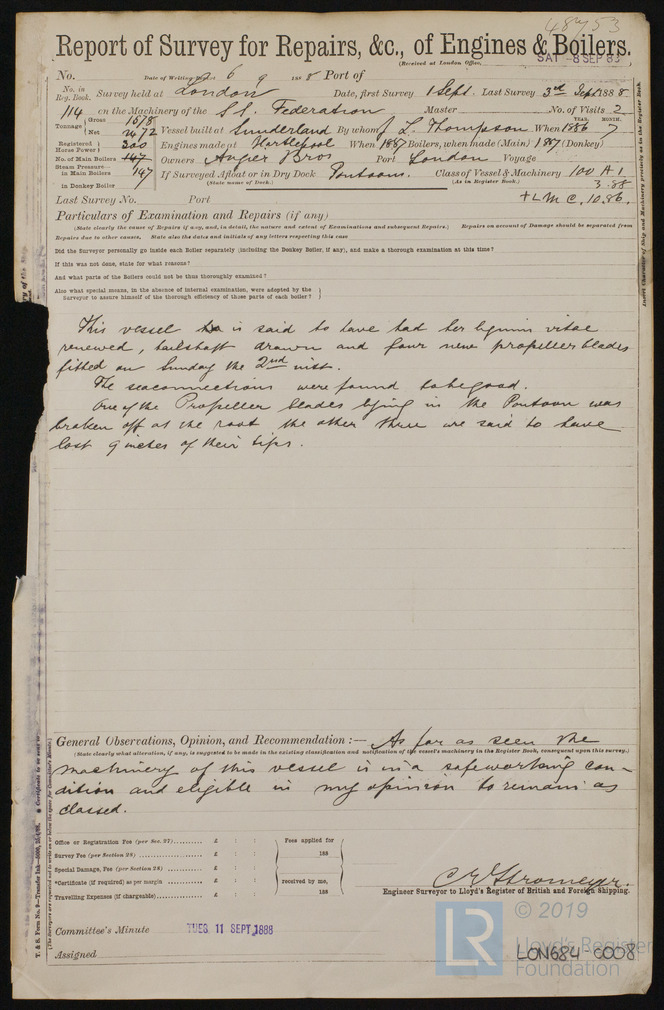 48753
Report of Survey for Repairs, &c., of Engines & Boilers.
(Received at London Office, SAT -8 SEP 88
No. Date of Writing 6 9 1888 Port of
No. in Reg. Book. Survey held at London Date, first Survey 1 Sept. Last Survey 3rd Sept 1888
114 on the Machinery of the S.S. Federation Master No. of Visits 2
Tonnage Gross Net 2472 Vessel built at Sunderland By whom J L. Thompson When 1886 YEAR. MONTH. 7
Registered Horse Power 300 Engines made at Hartlepool When 1887 Boilers, when made (Main) 1887 (Donkey)
No. of Main Boilers 147 Owners Angier Bros Port London Voyage
Steam Pressure in Main Boilers 147 If Surveyed Afloat or in Dry Dock Pontoons. Class of Vessel & Machinery 100 A 1
in Donkey Boiler (State name of Dock.) (As in Register Book.) 3.88
Last Survey No. Port + L M C. 10.86.
Particulars of Examination and Repairs (if any)
(State clearly the cause of Repairs if any, and, in detail, the nature and extent of Examinations and subsequent Repairs.) Repairs on account of Damage should be separated from
Repairs due to other causes, State also the dates and initials of any letters respecting this case
Did the Surveyor personally go inside each Boiler separately (including the Donkey Boiler, if any), and make a thorough examination at this time?
If this was not done, state for what reasons?
And what parts of the Boilers could not be thus thoroughly examined?
Also what special means, in the absence of internal examination, were adopted by the
Surveyor to assure himself of the thorough efficiency of those parts of each boiler?
This vessel is said to have had her lignum vitae
renewed, tailshaft drawn and four new propeller blades
fitted on Sunday the 2nd inst.
The seaconnections were found to be good.
One of the Propeller blades lying in the Pontoon was
broken off at the root the other three are said to have
lost 9 inches of their tips.
General Observations, Opinion, and Recommendation :— As far as seen the
(State clearly what alteration, if any, is suggested to be made in the existing classification and notification of the vessel's machinery in the Register Book, consequent upon this survey.)
machinery of this vessel is in a safe working con-
dition and eligible in my opinion to remain as
classed.
Office or Registration Fee (per Sec. 27).......... £ : : Fees applied for
Survey Fee (per Section 28) .................. £ : : 188
Special Damage, Fee (per Section 28) .......... £ : :
*Certificate (if required) as per margin .......... £ : : received by me,
Travelling Expenses (if chargeable).............. £ : : 188
C E Stromeyer.
Engineer Surveyor to Lloyd's Register of British and Foreign Shipping.
Committee's Minute TUES 11 SEPT 1888
Assigned
LR © 2019
Lloyd's Register
Foundation
LON684-0008
Insert Character of Ship and Machinery precisely as in the Register Book